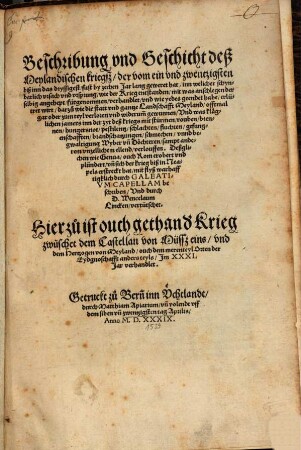 Beschribung vnd Geschicht deß
Meylandischen kriegs / der vom ein vnd zwentzigsten
biß inn das dryssigest fast by zechen Jar lang gewert hat / inn welicher schyn=
berlich
angehept / fürgenommen / verhandlet / vnd wie yedes geendet habe /
wie die statt vnd gantze Landschafft Meyland / offtmal
gar oder zum teyl verloren vnd widerumb gewunnen / Vnd was kläg=
lichen jamers inn der zyt deß kriegs mit stürmen / rouben / bren=
nen / hungersnot / pestilentz / schlachten / fluchten / gefäng=
nuschafften / brandschatzungen / schmechen / vnnd be=
gwaltigung Wyber vnd Döchteren / sampt ande=
rem vnzellichem ellend / verlouffen. Deßgli=
chen wie Genua / ouch Rom erobert vnd
plündert / vnd sich der krieg biß in Nea=
pels erstreckt hat / mit flyß warhaff
tigklich durch GALEATI
VM CAPELLAM be
schriben / Vnd durch
D. Wenceslaum
Lincken vertütschet.
Hier zů ist ouch gethan d Krieg
zwüschet dem Castellan von Müß eins / vnd
dem Hertzogen von Meyland / ouch dem merenteyl Orten der
Eydgnoschafft anders teyls / Im XXXI.
Jar verhandlet.
Getruckt zů Bern inn Üchtlande /
durch Mathiam Apiarium / vnd volendet vff
dem siben vnd zwenzigsten tag Aprilis /
Anno M. D. XXXIX.
1539